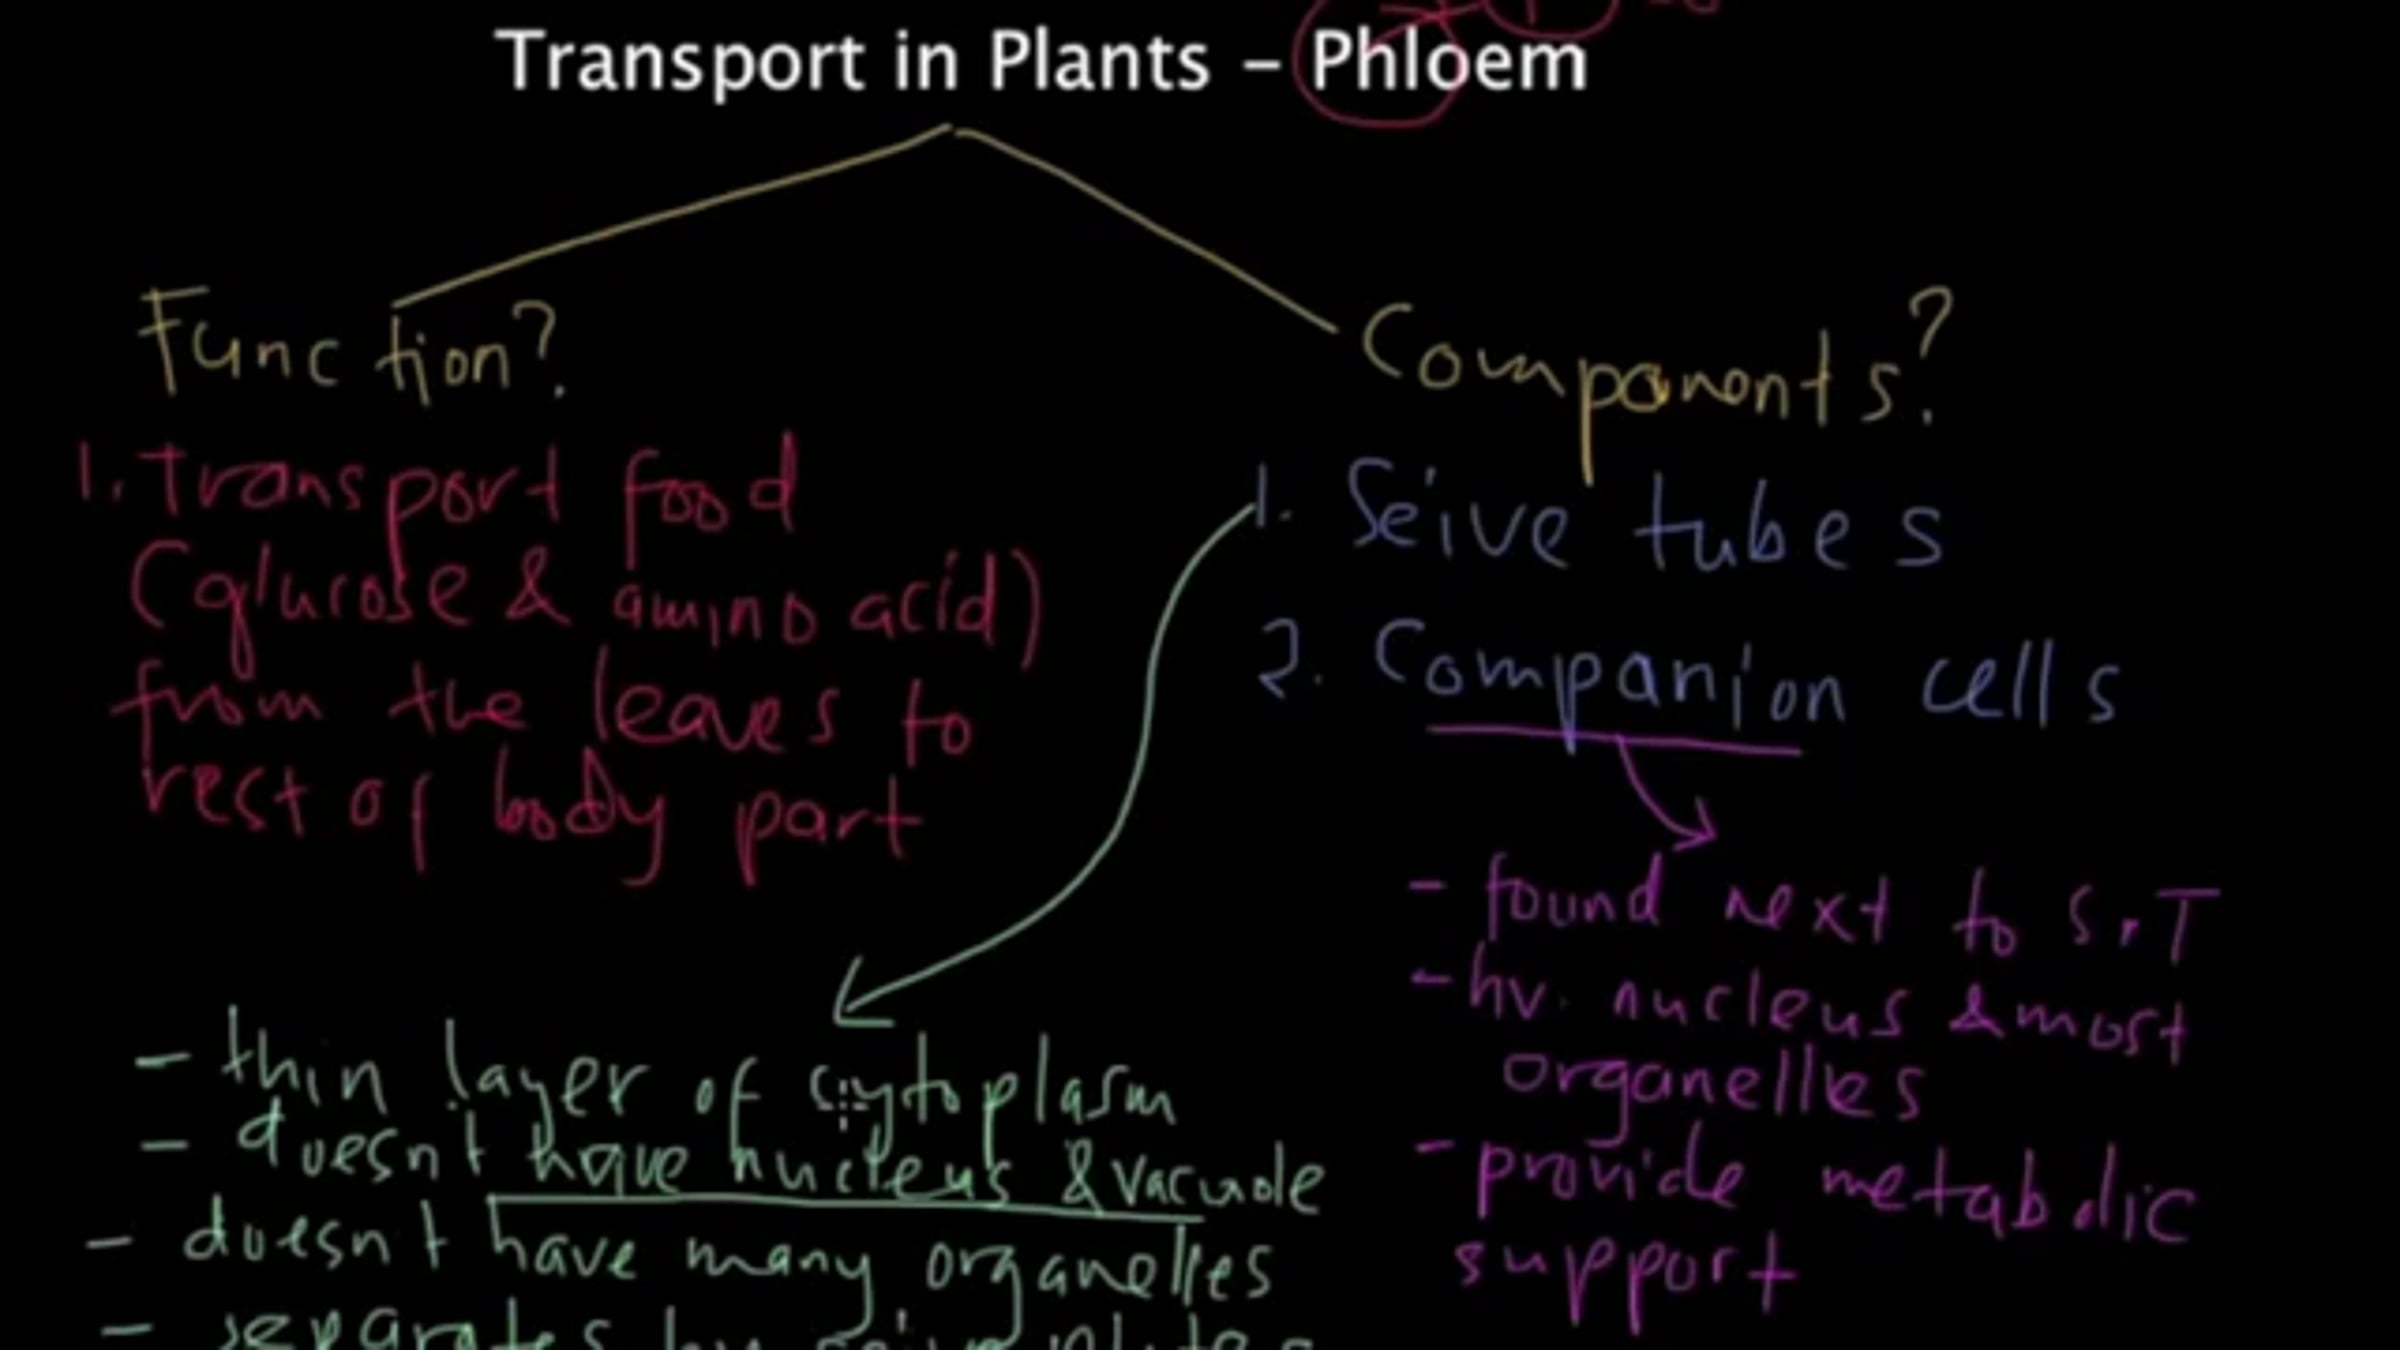 Transport in Plants – Phloem
Function?
1. Transport food
(glucose & amino acid)
from the leaves to
rest of body part
Components?
1. Seive tubes
2. Companion cells
- found next to S.T
- hv. nucleus & most
organelles
- provide metabolic
support
- thin layer of cytoplasm
- doesn't have nucleus & vacuole
- doesn't have many organelles
- separates by